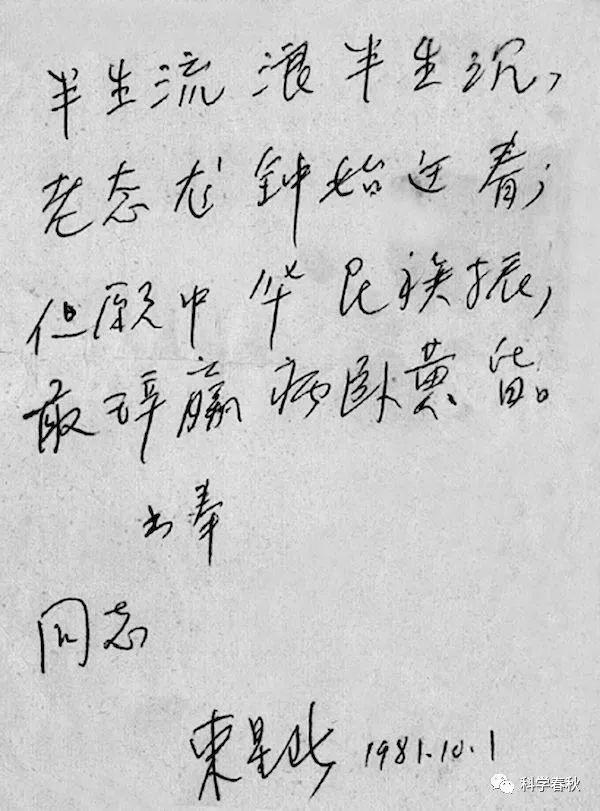 半生流浪半生沉，
老态龙钟始迎春；
但愿中华民族振，
敢辞羸病卧黄昏。
书奉
同志
束星北 1981.10.1
科学春秋